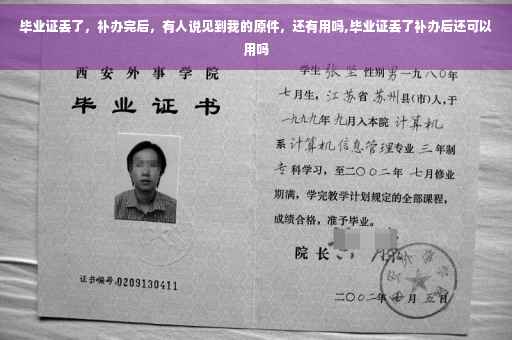 毕业证丢了，补办完后，有人说见到我的原件，还有用吗,毕业证丢了补办后还可以
用吗
西安外事学院
毕业证书
证书编号:0209130411
学生张 性别男一九八〇年
七月生，江苏省苏州县(市)人,于
一九九九年九月入本院计算机
系计算机信息管理专业三年制
专科学习，至二〇〇二年七月修业
期满，学完教学计划规定的全部课程，
成绩合格，准予毕业。
院长
二〇〇二年七月五日